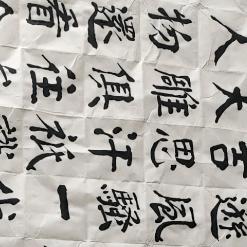 遜風騷一代
吉思汗祇識
大雕俱往
人物還看